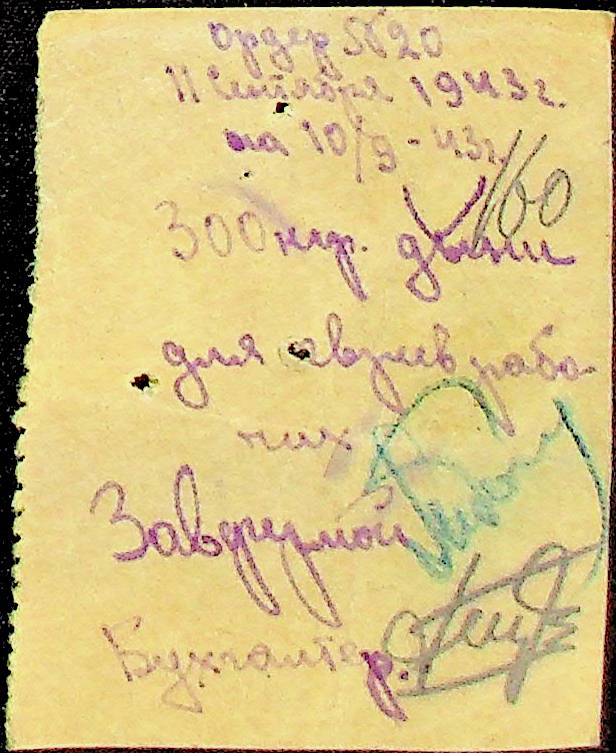 Ордер № 20
11 Сентября 1943 г.
на 10/9 - 43 г.
160
300 кгр. дыни
для рабо-
чих
Завфермой
Бухгалтер.